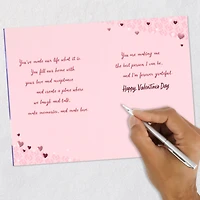 You've made our life what it is.
You fill our home with
your love and acceptance
and create a place where
we laugh and talk,
make memories, and make love.
You are making me
the best person I can be,
and I'm forever grateful.
Happy Valentine's Day